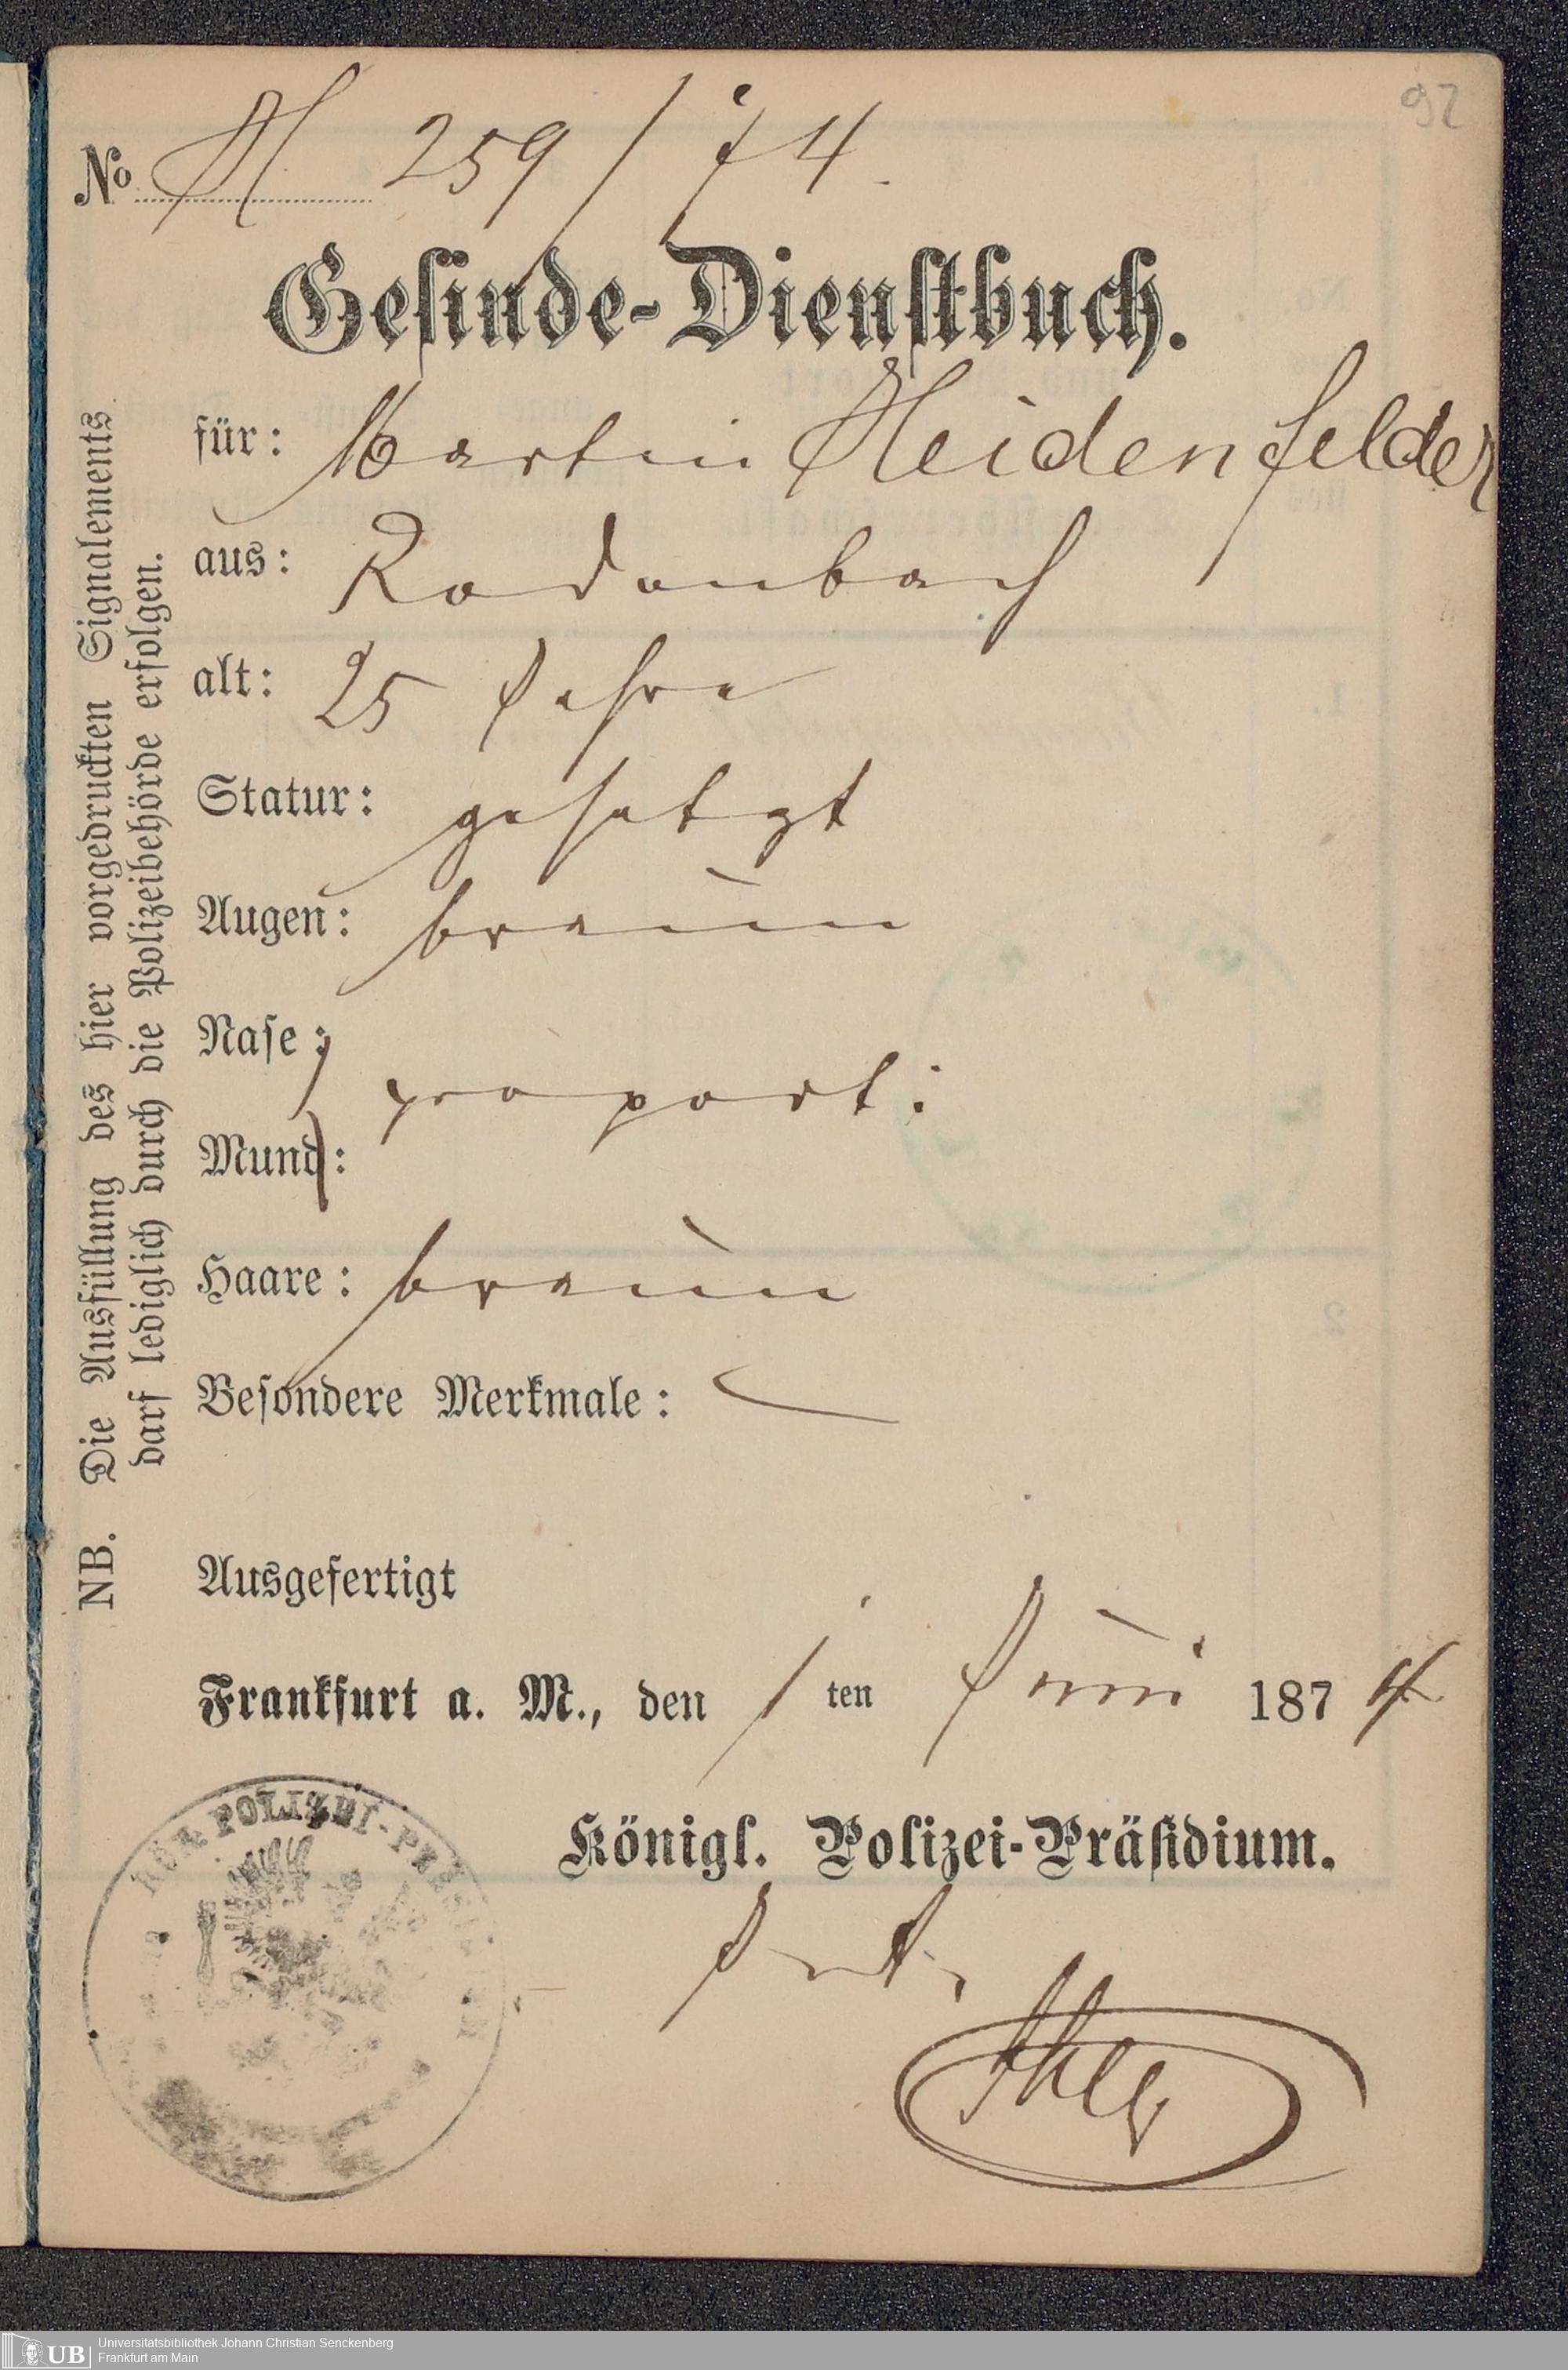 92
No H 259/74.
Gesinde-Dienstbuch.
für: Martin Heidenfelder
aus: Rodenbach
alt: 25 Jahre
Statur: gesetzt
Augen: braun
Nase:
proport:
Mund:
Haare: braun
Besondere Merkmale: —
Ausgefertigt
Frankfurt a. M., den 1 ten Juni 1874
Königl. Polizei-Präsidium.
NB. Die Ausfüllung des hier vorgedruckten Signalements
darf lediglich durch die Polizeibehörde erfolgen.
POLIZEI-
UB
Universitätsbibliothek Johann Christian Senckenberg
Frankfurt am Main